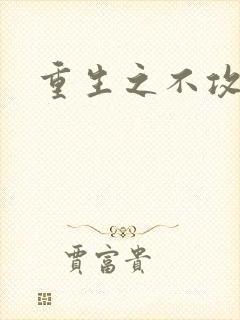 重生之不
賈富貴